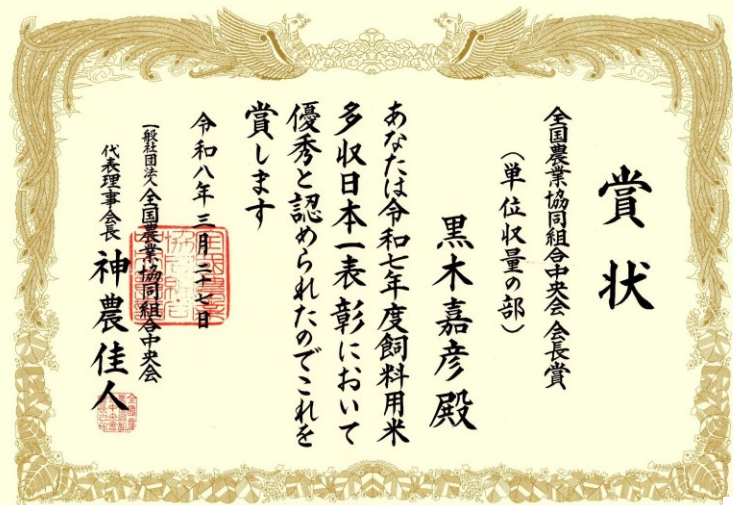 賞状
全国農業協同組合中央会 会長賞
（単位収量の部）
黒木嘉彦殿
あなたは令和七年度飼料用米
多収日本一表彰において
優秀と認められたのでこれを
賞します
令和八年三月二十七日
一般社団法人全国農業協同組合中央会
代表理事会長 神農佳人